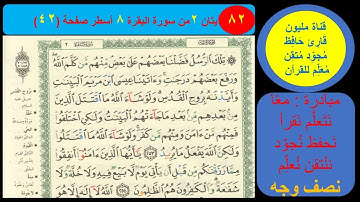 ٨٢ يتان ٢ من سورة البقرة ٨ أسطر صفحة (٤٢)
قناة مليون
قارئ حافظ
مُجوّد مُتقن
مُعلّم للقرآن
مبادرة : معًا
نَتَعلّم نَقرأ
نَحفظ نُجوّد
نتُتقن نُعلّم
نصف وجه
تِلْكَ ٱلرُّسُلُ فَضَّلْنَا بَعْضَهُمْ عَلَىٰ بَعْضٍ مِّنْهُم مَّن كَلَّمَ ٱللَّهُ
وَرَفَعَ بَعْضَهُمْ دَرَجَٰتٍ وَءَاتَيْنَا عِيسَى ٱبْنَ مَرْيَمَ ٱلْبَيِّنَٰتِ
وَأَيَّدْنَٰهُ بِرُوحِ ٱلْقُدُسِ وَلَوْ شَآءَ ٱللَّهُ مَا ٱقْتَتَلَ ٱلَّذِينَ
مِنۢ بَعْدِهِم مِّنۢ بَعْدِ مَا جَآءَتْهُمُ ٱلْبَيِّنَٰتُ
وَلَٰكِنِ ٱخْتَلَفُوا۟ فَمِنْهُم مَّنْ ءَامَنَ وَمِنْهُم مَّن كَفَرَ وَلَوْ شَآءَ ٱللَّهُ مَا ٱقْتَتَلُوا۟
وَلَٰكِنَّ ٱللَّهَ يَفْعَلُ مَا يُرِيدُ ٢٥٣ يَٰٓأَيُّهَا ٱلَّذِينَ ءَامَنُوٓا۟ أَنفِقُوا۟
مِمَّا رَزَقْنَٰكُم مِّن قَبْلِ أَن يَأْتِىَ يَوْمٌ لَّا بَيْعٌ فِيهِ وَلَا خُلَّةٌ وَلَا
شَفَٰعَةٌ وَٱلْكَٰفِرُونَ هُمُ ٱلظَّٰلِمُونَ ٢٥٤ ٱللَّهُ لَآ إِلَٰهَ إِلَّا هُوَ